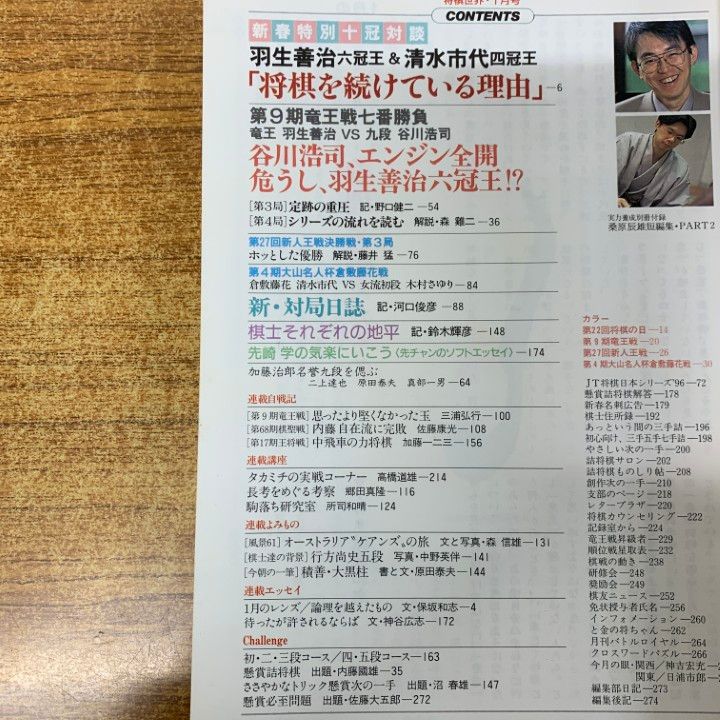 将棋世界・1月号
CONTENTS
新春特別十冠対談
羽生善治六冠王&清水市代四冠王
「将棋を続けている理由」—6
第9期竜王戦七番勝負
竜王 羽生善治 VS 九段 谷川浩司
谷川浩司、エンジン全開
危うし、羽生善治六冠王!?
[第3局]定跡の重圧 記・野口健二—54
[第4局]シリーズの流れを読む 解説・森 雞二—36
第27回新人王戦決勝戦・第3局
ホッとした優勝 解説・藤井 猛—76
第4期大山名人杯倉敷藤花戦
倉敷藤花 清水市代 VS 女流初段 木村さゆり—84
新・対局日誌 記・河口俊彦—88
棋士それぞれの地平 記・鈴木輝彦—148
先崎 学の気楽にいこう〈先チャンのソフトエッセイ〉—174
加藤治郎名誉九段を偲ぶ
二上達也 原田泰夫 真部一男—64
連載自戦記
[第9期竜王戦]思ったより堅くなかった玉 三浦弘行—100
[第68期棋聖戦]内藤自在流に完敗 佐藤康光—108
[第17期王将戦]中飛車の力将棋 加藤一二三—156
連載講座
タカミチの実戦コーナー 高橋道雄—214
長考をめぐる考察 郷田真隆—116
駒落ち研究室 所司和晴—124
連載よみもの
[風景61]オーストラリア〝ケアンズ〟の旅 文と写真・森 信雄—131
[棋士達の背景]行方尚史五段 写真・中野英伴—141
[今朝の一筆]積善・大黒柱 書と文・原田泰夫—144
連載エッセイ
1月のレンズ/論理を越えたもの 文・保坂和志—4
待ったが許されるならば 文・神谷広志—172
Challenge
初・二・三段コース/四・五段コース—163
懸賞詰将棋 出題・内藤國雄—35
ささやかなトリック懸賞次の一手 出題・沼 春雄—147
懸賞必至問題 出題・佐藤大五郎—272
実力養成別冊付録
桑原辰雄短編集・PART2
カラー
第22回将棋の日—14
第9期竜王戦—20
第27回新人王戦—26
第4期大山名人杯倉敷藤花戦—30
JT将棋日本シリーズ'96—72
懸賞詰将棋解答—178
新春名刺広告—179
棋士住所録—192
あっという間の三手詰—196
初心向け、三手五手七手詰—198
やさしい次の一手—200
詰将棋サロン—202
詰将棋ものしり帖—208
創作次の一手—210
支部のページ—218
レタープラザ—220
将棋カウンセリング—222
記録室から—224
竜王戦昇級者—229
順位戦星取表—232
棋戦の動き—238
研修会—248
奨励会—249
棋友ニュース—252
免状授与者氏名—256
インフォメーション—260
と金の将ちゃん—262
月刊バトルロイヤル—264
クロスワードパズル—266
今月の眼・関西/神吉宏充—2
関東/日浦市郎—
編集部日記—273
編集後記—274